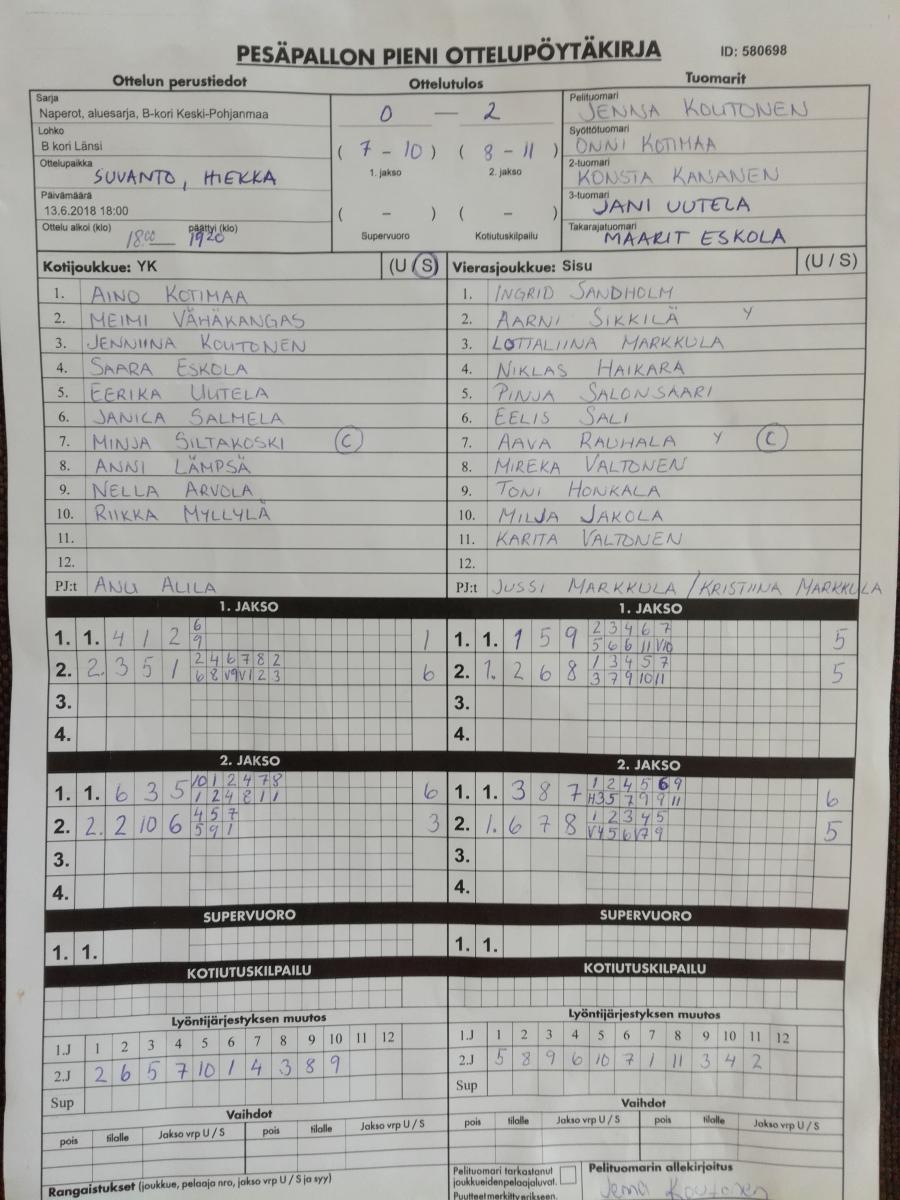 PESÄPALLON PIENI OTTELUPÖYTÄKIRJA ID: 580698
Ottelun perustiedot Ottelutulos Tuomarit
Sarja
Naperot, aluesarja, B-kori Keski-Pohjanmaa
Lohko
B kori Länsi
Ottelupaikka
SUVANTO, HIEKKA
Päivämäärä
13.6.2018 18:00
Ottelu alkoi (klo) 18:00 päättyi (klo) 1920
0 — 2
( 7 - 10 ) ( 8 - 11 )
1. jakso 2. jakso
( - ) ( - )
Supervuoro Kotiutuskilpailu
Pelituomari
JENNA KOUTONEN
Syöttötuomari
ONNI KOTIMAA
2-tuomari
KONSTA KANANEN
3-tuomari
JANI UUTELA
Takarajatuomari
MAARIT ESKOLA
Kotijoukkue: YK (U / S)
1. AINO KOTIMAA
2. MEIMI VÄHÄKANGAS
3. JENNIINA KOUTONEN
4. SAARA ESKOLA
5. EERIKA UUTELA
6. JANICA SALMELA
7. MINJA SILTAKOSKI C
8. ANNI LÄMPSÄ
9. NELLA ARVOLA
10. RIIKKA MYLLYLÄ
11.
12.
PJ:t ANU ALILA
Vierasjoukkue: Sisu (U / S)
1. INGRID SANDHOLM
2. AARNI SIKKILÄ Y
3. LOTTALIINA MARKKULA
4. NIKLAS HAIKARA
5. PINJA SALONSAARI
6. EELIS SALI
7. AAVA RAUHALA Y C
8. MIREKA VALTONEN
9. TONI HONKALA
10. MILJA JAKOLA
11. KARITA VALTONEN
12.
PJ:t JUSSI MARKKULA / KRISTIINA MARKKULA
1. JAKSO
1. 1. 4 1 2 6 1
9
2. 2. 3 5 1 2 4 6 7 8 2 6
6 8 V9 V1 2 3
3.
4.
1. JAKSO
1. 1. 1 5 9 2 3 4 6 7 5
5 6 6 11 V10
2. 1. 2 6 8 1 3 4 5 7 5
3 7 9 10 11
3.
4.
2. JAKSO
1. 1. 6 3 5 10 1 2 4 7 8 6
1 2 4 8 1 1
2. 2. 2 10 6 4 5 7 3
5 9 1
3.
4.
2. JAKSO
1. 1. 3 8 7 1 2 4 5 6 9 6
H3 5 7 9 9 11
2. 1. 6 7 8 1 2 3 4 5 5
V4 5 6 V7 9
3.
4.
SUPERVUORO SUPERVUORO
1. 1. 1. 1.
KOTIUTUSKILPAILU KOTIUTUSKILPAILU
Lyöntijärjestyksen muutos
1.J 1 2 3 4 5 6 7 8 9 10 11 12
2.J 2 6 5 7 10 1 4 3 8 9
Sup
Lyöntijärjestyksen muutos
1.J 1 2 3 4 5 6 7 8 9 10 11 12
2.J 5 8 9 6 10 7 1 11 3 4 2
Sup
Vaihdot Vaihdot
pois tilalle Jakso vrp U / S pois tilalle Jakso vrp U / S
pois tilalle Jakso vrp U / S pois tilalle Jakso vrp U / S
Rangaistukset (joukkue, pelaaja nro, jakso vrp U / S ja syy)
Pelituomari tarkastanut
joukkueidenpelaajaluvat.
Puutteet merkitty erikseen.
Pelituomarin allekirjoitus
Jenna Koutonen